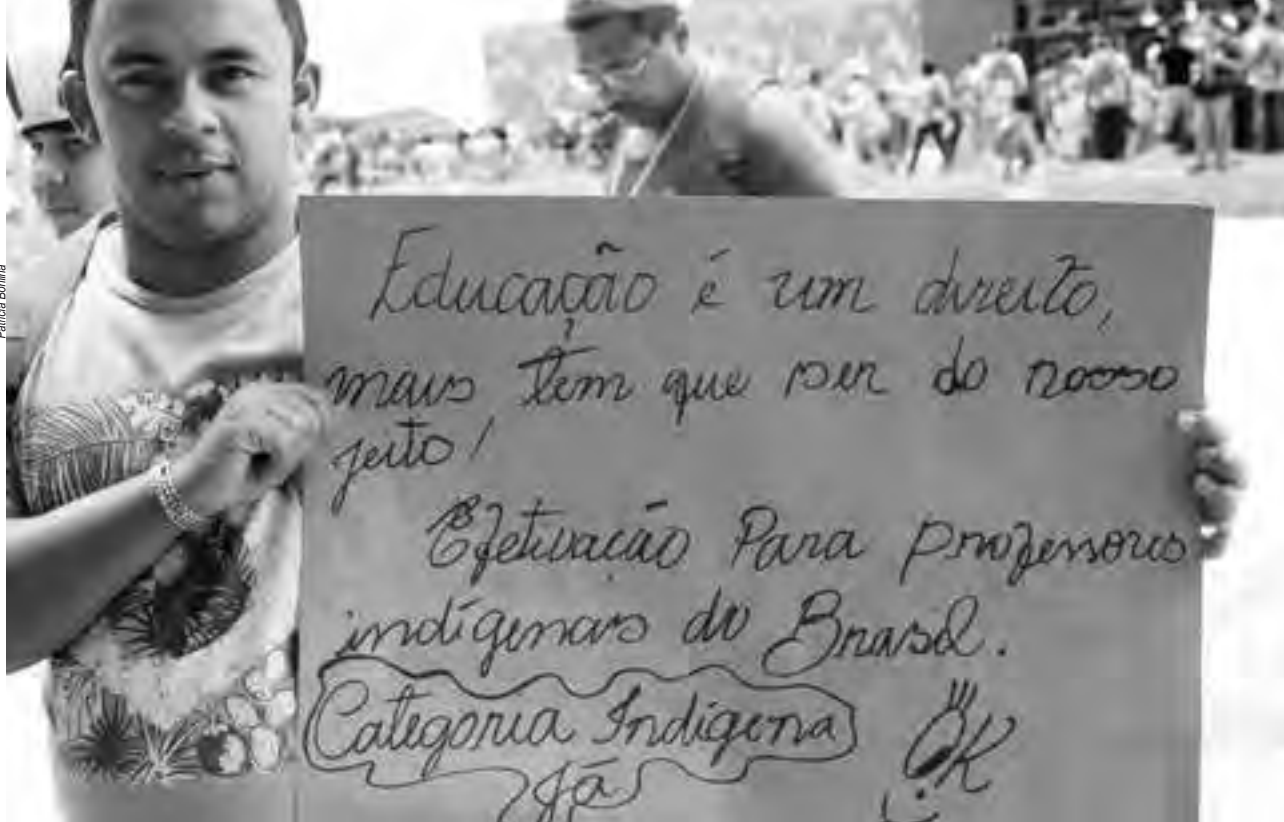 Patrícia Bonilha
Educação é um direito,
mais tem que ser do nosso
jeito!
Efetivação Para professores
indígenas do Brasil.
Categoria Indígena
Já
OK